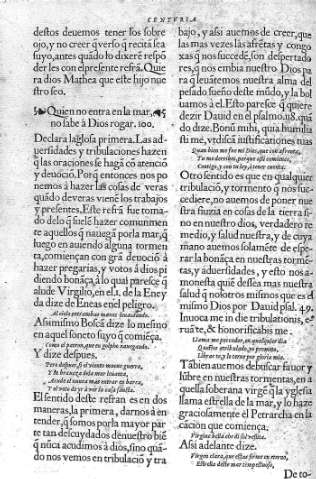 CENTVRIA
destos deuemos tener los sobre
ojo, y no creer q̃ verlo q̃ recitã sea
suyo, antes quãdo lo dixerẽ respõ
der les con el presente refrã. Quie
ra dios Mathea que este hijo nue
stro sea.
Quien no entra en la mar,
no sabe à Dios rogar. 100.
Declara la glosa primera. Las ad-
uersidades y tribulaciones hazen
q̃ las oraciones se hagã cõ atenció
y deuoció. Porq̃ entonces nos po
nemos à hazer las cosas de veras
quãdo de veras vienẽ los trabajos
y presentes. Este refrã fue toma-
do de lo q̃ suelẽ hazer comunmen
te aquellos q̃ nauegã por la mar, q̃
luego en auiendo alguna tormen
ta, comiençan con grã deuoció à
hazer pregarias, y votos à dios pi
diendo bonãça, à lo qual parece q̃
alude Virgilio, en el .1. de la Eney
da dize de Eneas en el peligro.
Assi mismo Boscã dize lo mesmo
en aquel soneto suyo q̃ comiẽça.
Como el patron, que en golpho nauegando.
Y dize despues.
Pero despues, si el viento mueue guerra,
El sentido deste refran es en dos
maneras, la primera, darnos à en
tender, q̃ somos por la mayor par
te tan descuydados de nuestro biẽ
q̃ nũca acudimos à dios, sino quã-
do nos vemos en tribulació y tra
bajo, y assi auemos de creer, que
las mas vezes las afrẽtas y congo
xas q̃ nos sucedẽ, son despertado
res, q̃ nos embia nuestro Dios pa
ra q̃ leuãtemos nuestra alma del
pesado sueño deste mũdo, y la bol
uamos à el. Esto paresce q̃ quiere
dezir Dauid en el psalmo. 118. quã
do dize. Bonũ mihi, quia humilia
sti me, vt discã iustificationes tuas
Quan bien me fue mi Dios, que con afrenta,
Contigo, y con tu ley, tomar cuenta.
Otro sentido es que en qualquier
tribulació, y tormento q̃ nos suc-
cediere, no auemos de poner nue
stra fiuzia en cosas de la tierra si-
no en nuestro dios, verdadero re
medio, y salud nuestra, y de cuya
mano auemos solamẽte de espe-
rar la bonãça en nuestras tormẽ-
tas, y aduersidades, y esto nos a-
monesta quiẽ dessea mas nuestra
salud q̃ nosotros mismos que es el
mismo Dios por Dauid psal. 49.
Inuoca me in die tribulationis, e-
ruã te, & honorificabis me.
Llama me por valedor, en qualquier dia
Librar te, y le ternas por gloria mia.
Tãbien auemos de buscar fauor y
lũbre en nuestras tormentas, en a
quella soberana virgẽ q̃ la yglesia
llama estrella de la mar, y lo haze
graciosamente el Petrarcha en la
cancion que comiença.
Virgine bella che di sol vestita.
Assi adelante dize.
Virgen clara, que estas firme en eterno,
Estrella deste mar tempestuoso,
De to-